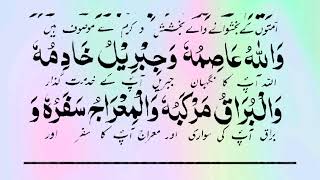 امتوں کے بخشوانے والے بخشش و کرم سے موصوف ہیں
وَاللّٰهُ عَاصِمُهٗ وَجِبْرِيْلُ خَادِمُهٗ
اللہ آپ کا نگہبان جبریل آپ کے خدمت گذار
وَالْبُرَاقُ مَرْكَبُهٗ وَالْمِعْرَاجُ سَفَرُهٗ وَ
براق آپ کی سواری اور معراج آپ کا سفر اور